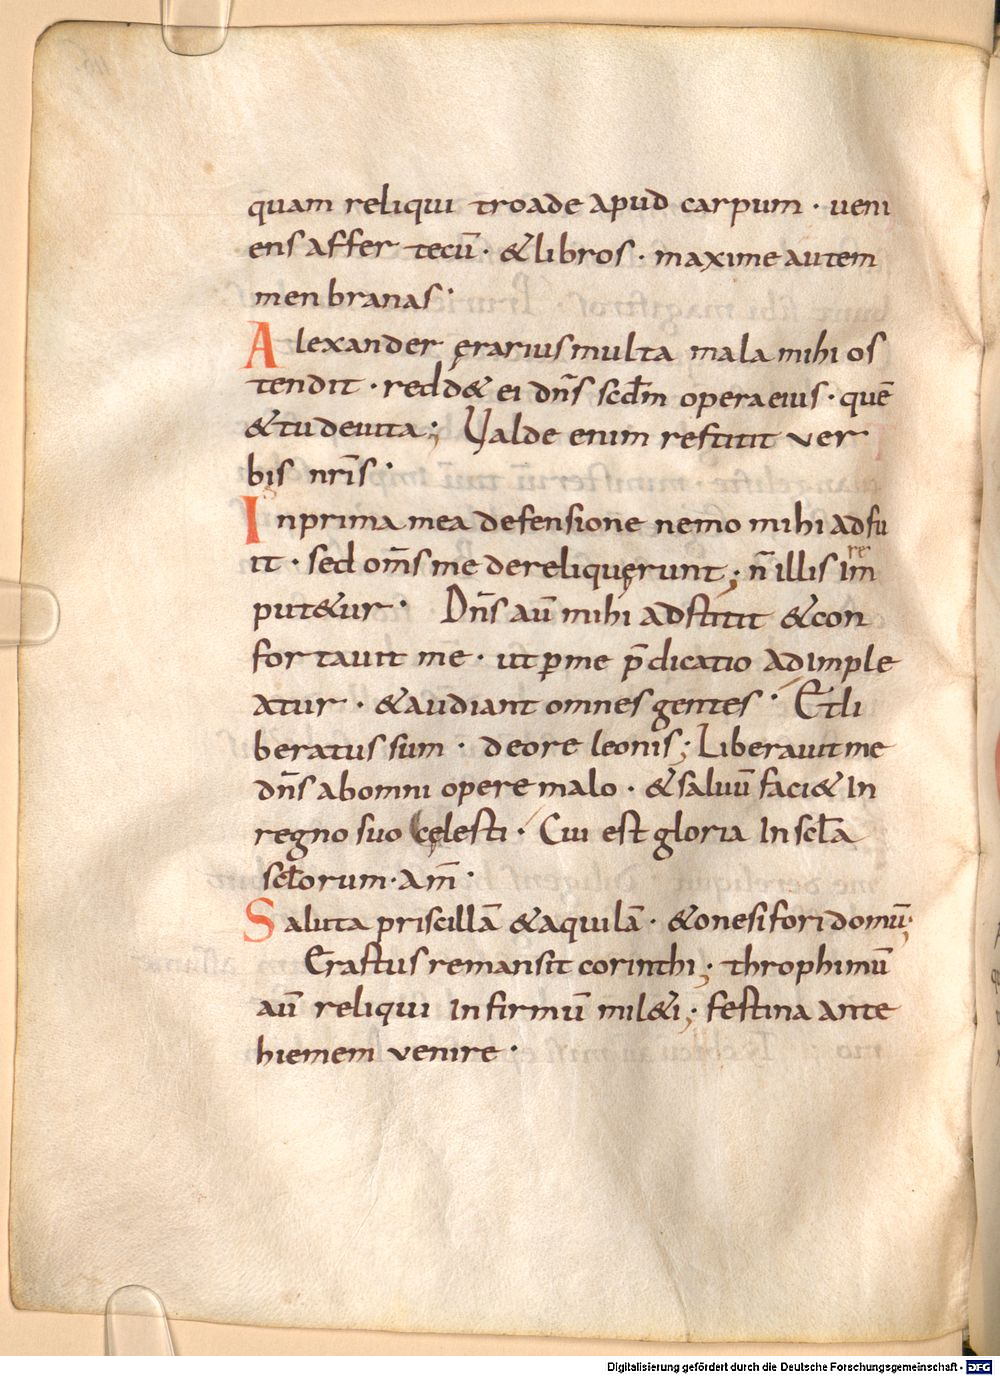 quam reliqui troade apud carpum · veni
ens affer tecū · & libros · maxime autem
menbranas ·
Alexander ęrarius multa mala mihi os
tendit · redd& ei dn̄s scd̄m opera eius · quē
& tu devita ; Valde enim restitit ver
bis nr̄is ·
In prima mea defensione nemo mihi adfu
it · sed om̄s me dereliquęrunt ; n̄ illis im
re
put&ur · Dn̄s aū mihi adstitit & con
fortavit me · ut ꝑ me p̄dicatio adimple
atur · & audiant omnes gentes · Et li
beratus sum · de ore leonis ; Liberavit me
dn̄s ab omni opere malo · & saluū faci& in
regno suo cęlesti · Cui est gloria in scl̄a
scl̄orum · am̄ ·
Saluta priscillā & aquilā · & onesifori domū ;
Erastus remansit corinthi ; throphimū
aū reliqui infirmū mil&i ; festina ante
hiemem venire ·
Digitalisierung gefördert durch die Deutsche Forschungsgemeinschaft - DFG